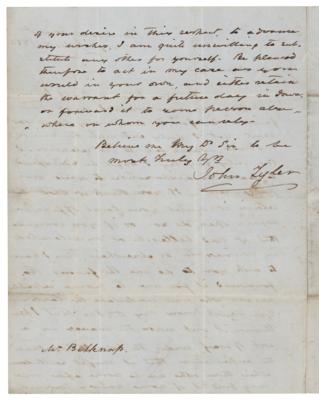 of your desire in this respect, to advance
my wishes, I am quite unwilling to sub-
stitute any other for yourself. Be pleased
therefore to act in my case as you
would in your own, and either retain
the warrant for a future day in
or forward it to some person else-
where on whom you can rely.
Believe me My Dr Sir to be
most truly Yrs
John Tyler
Mr Belknap.